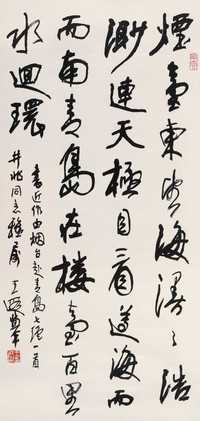 煙臺東望海漫々浩
渺連天極目寬遵海而
而南青島在樓臺百里
水迴環
書近作由烟台赴青島七絕一首
井兆同志雅属
王遐舉